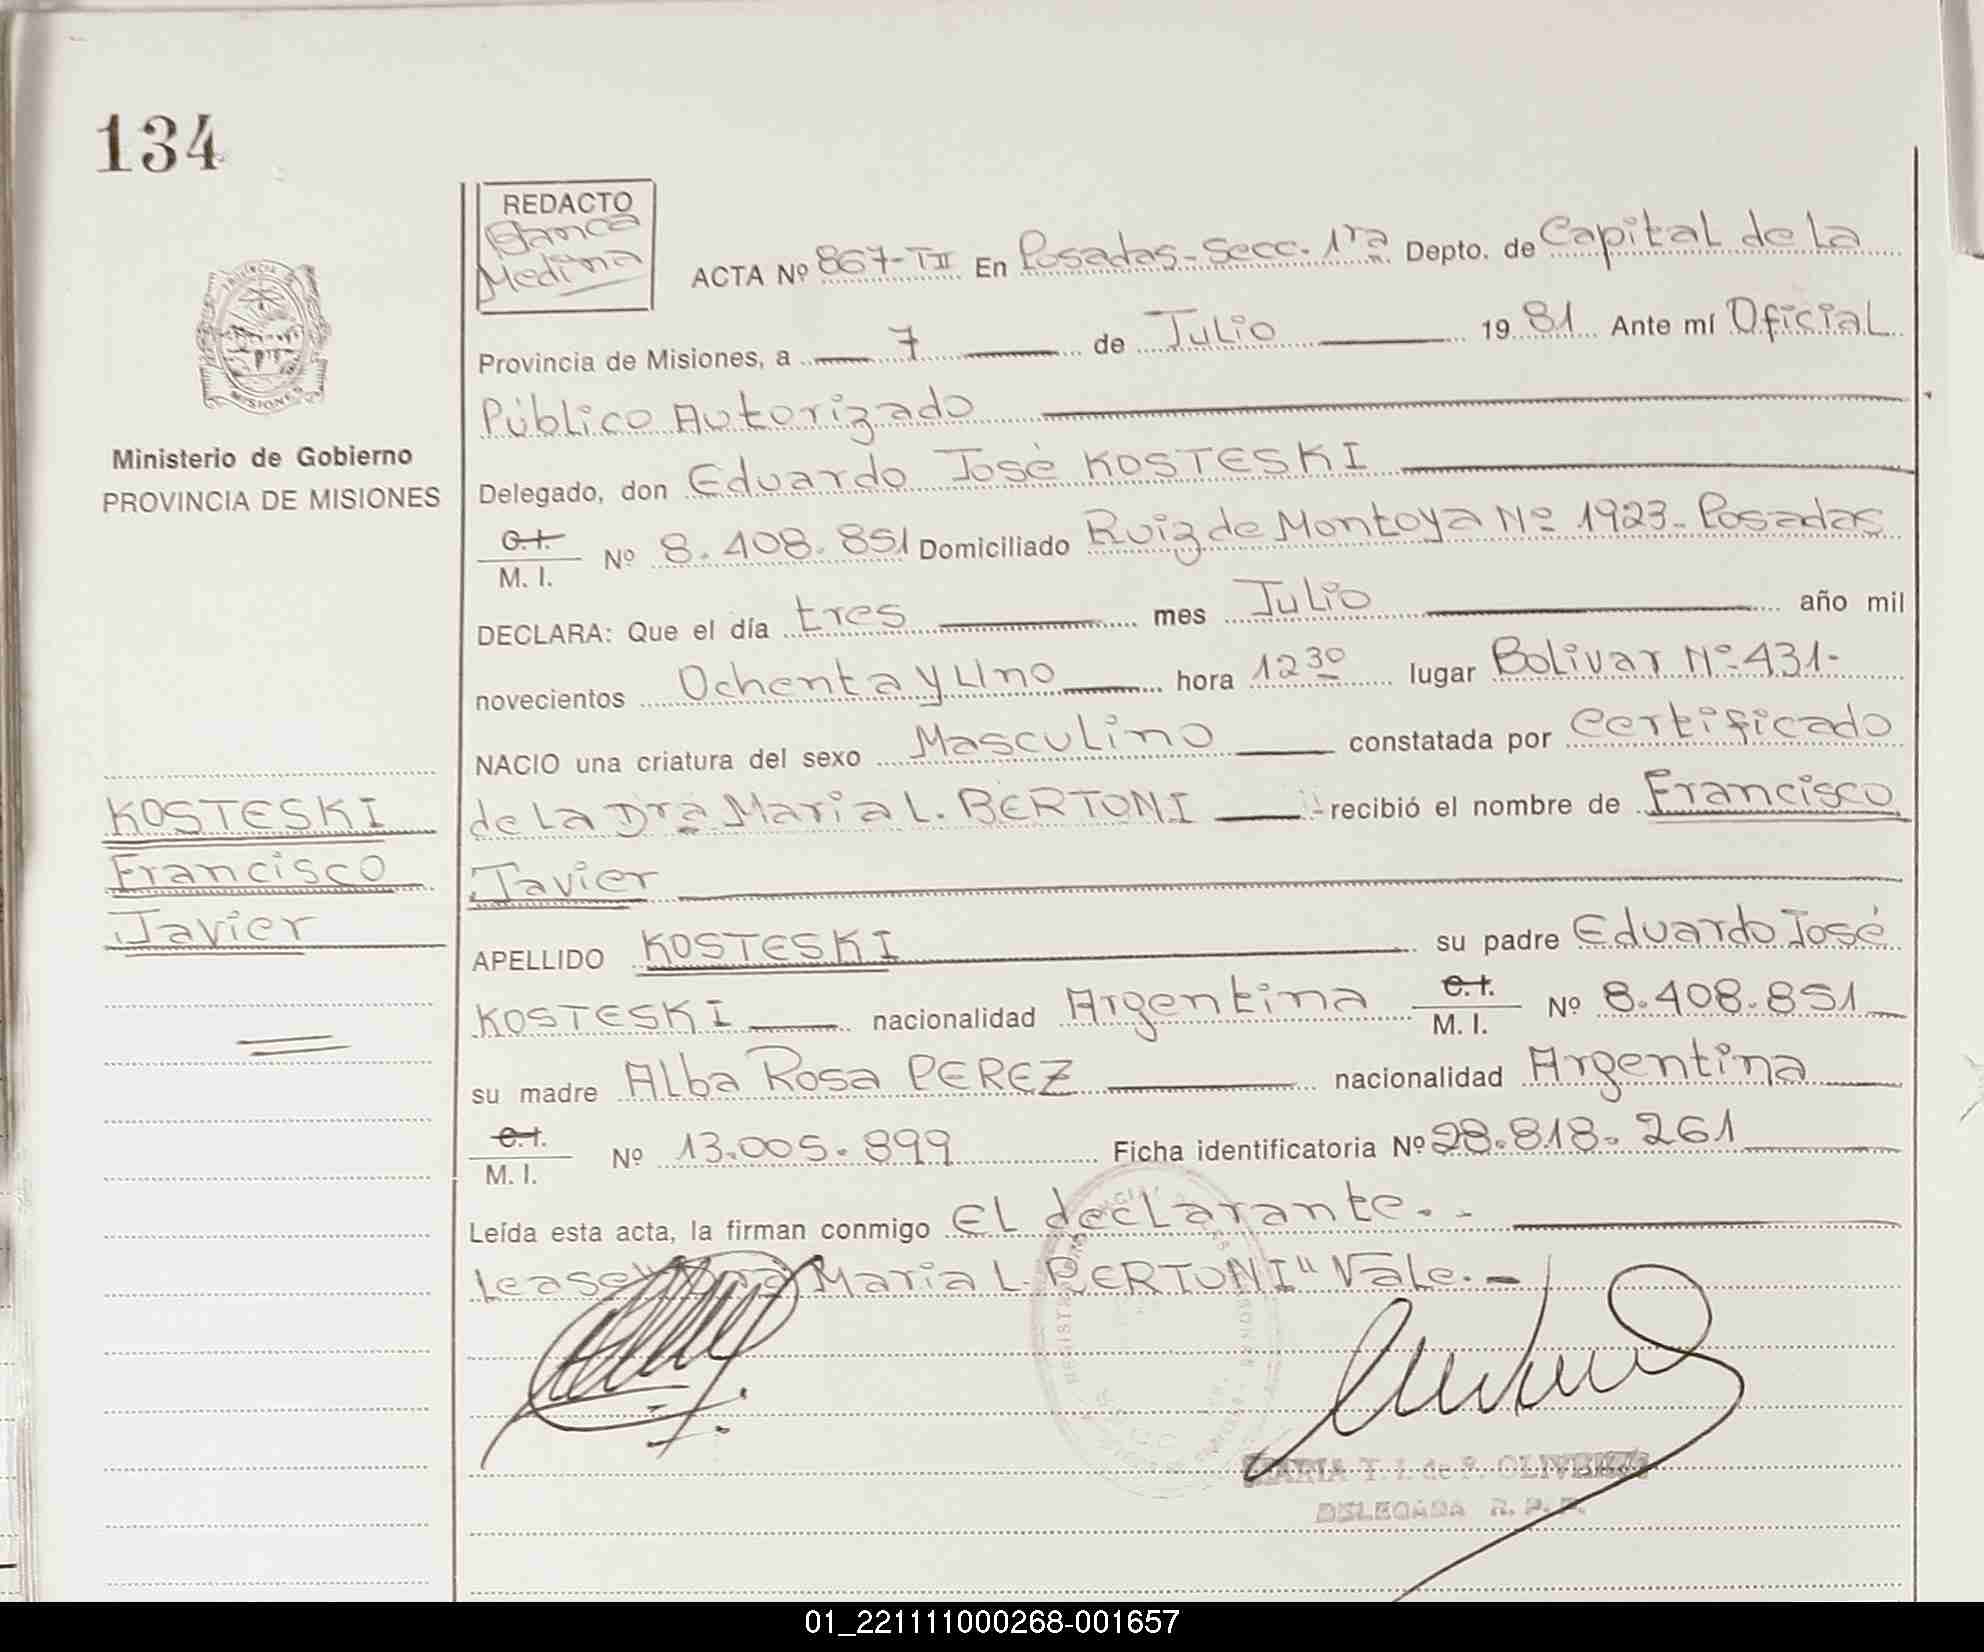 134
REDACTO
Blanca
Medina
ACTA Nº 867-III En Posadas-Secc. 1ra Depto. de Capital de la
Provincia de Misiones, a 7 de Julio 1981 Ante mí Oficial
Público Autorizado
Delegado, don Eduardo José KOSTESKI
C.I.
M. I. Nº 8.408.851 Domiciliado Ruiz de Montoya Nº 1923-Posadas
DECLARA: Que el día tres mes Julio año mil
novecientos Ochenta y Uno hora 12 30 lugar Bolivar Nº 431-
NACIO una criatura del sexo Masculino constatada por Certificado
de la Dra Maria L. BERTONI recibió el nombre de Francisco
Javier
APELLIDO KOSTESKI su padre Eduardo José
KOSTESKI nacionalidad Argentina C.I. M. I. Nº 8.408.851
su madre Alba Rosa PEREZ nacionalidad Argentina
C.I.
M. I. Nº 13.005.899 Ficha identificatoria Nº 28.818.261
Leída esta acta, la firman conmigo EL declarante.-
Lease "Dra Maria L. BERTONI" Vale.-
MARIA T. I. de P.
DELEGADA R. P. P.
PROVINCIA
MISIONES
Ministerio de Gobierno
PROVINCIA DE MISIONES
KOSTESKI
Francisco
Javier
01_221111000268-001657